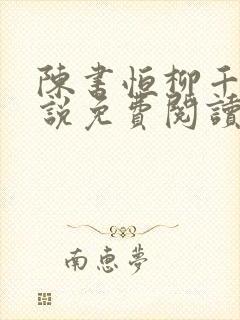 陳書恒柳千
說免費閱讀
南惠夢